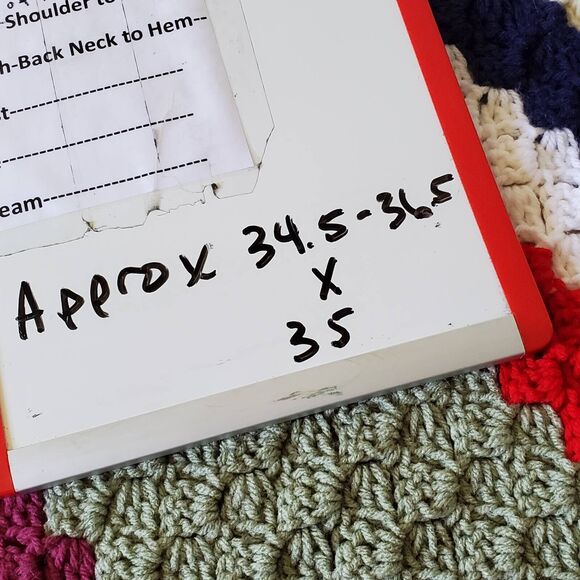 -Shoulder to
h-Back Neck to Hem--
st----------------------------
------------------------------
eam----------------------------
Approx 34.5-36.5
X
35